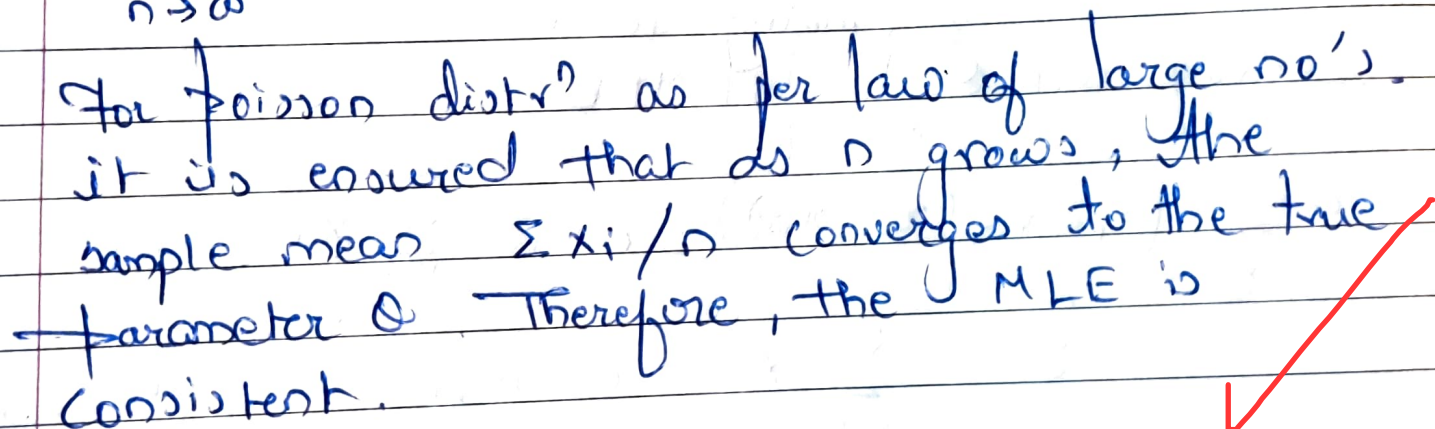 n → ∞
For poisson distrⁿ as per law of large no's.
it is ensured that as n grows, the
sample mean Σxi/n converges to the true
parameter θ. Therefore, the MLE is
consistent.